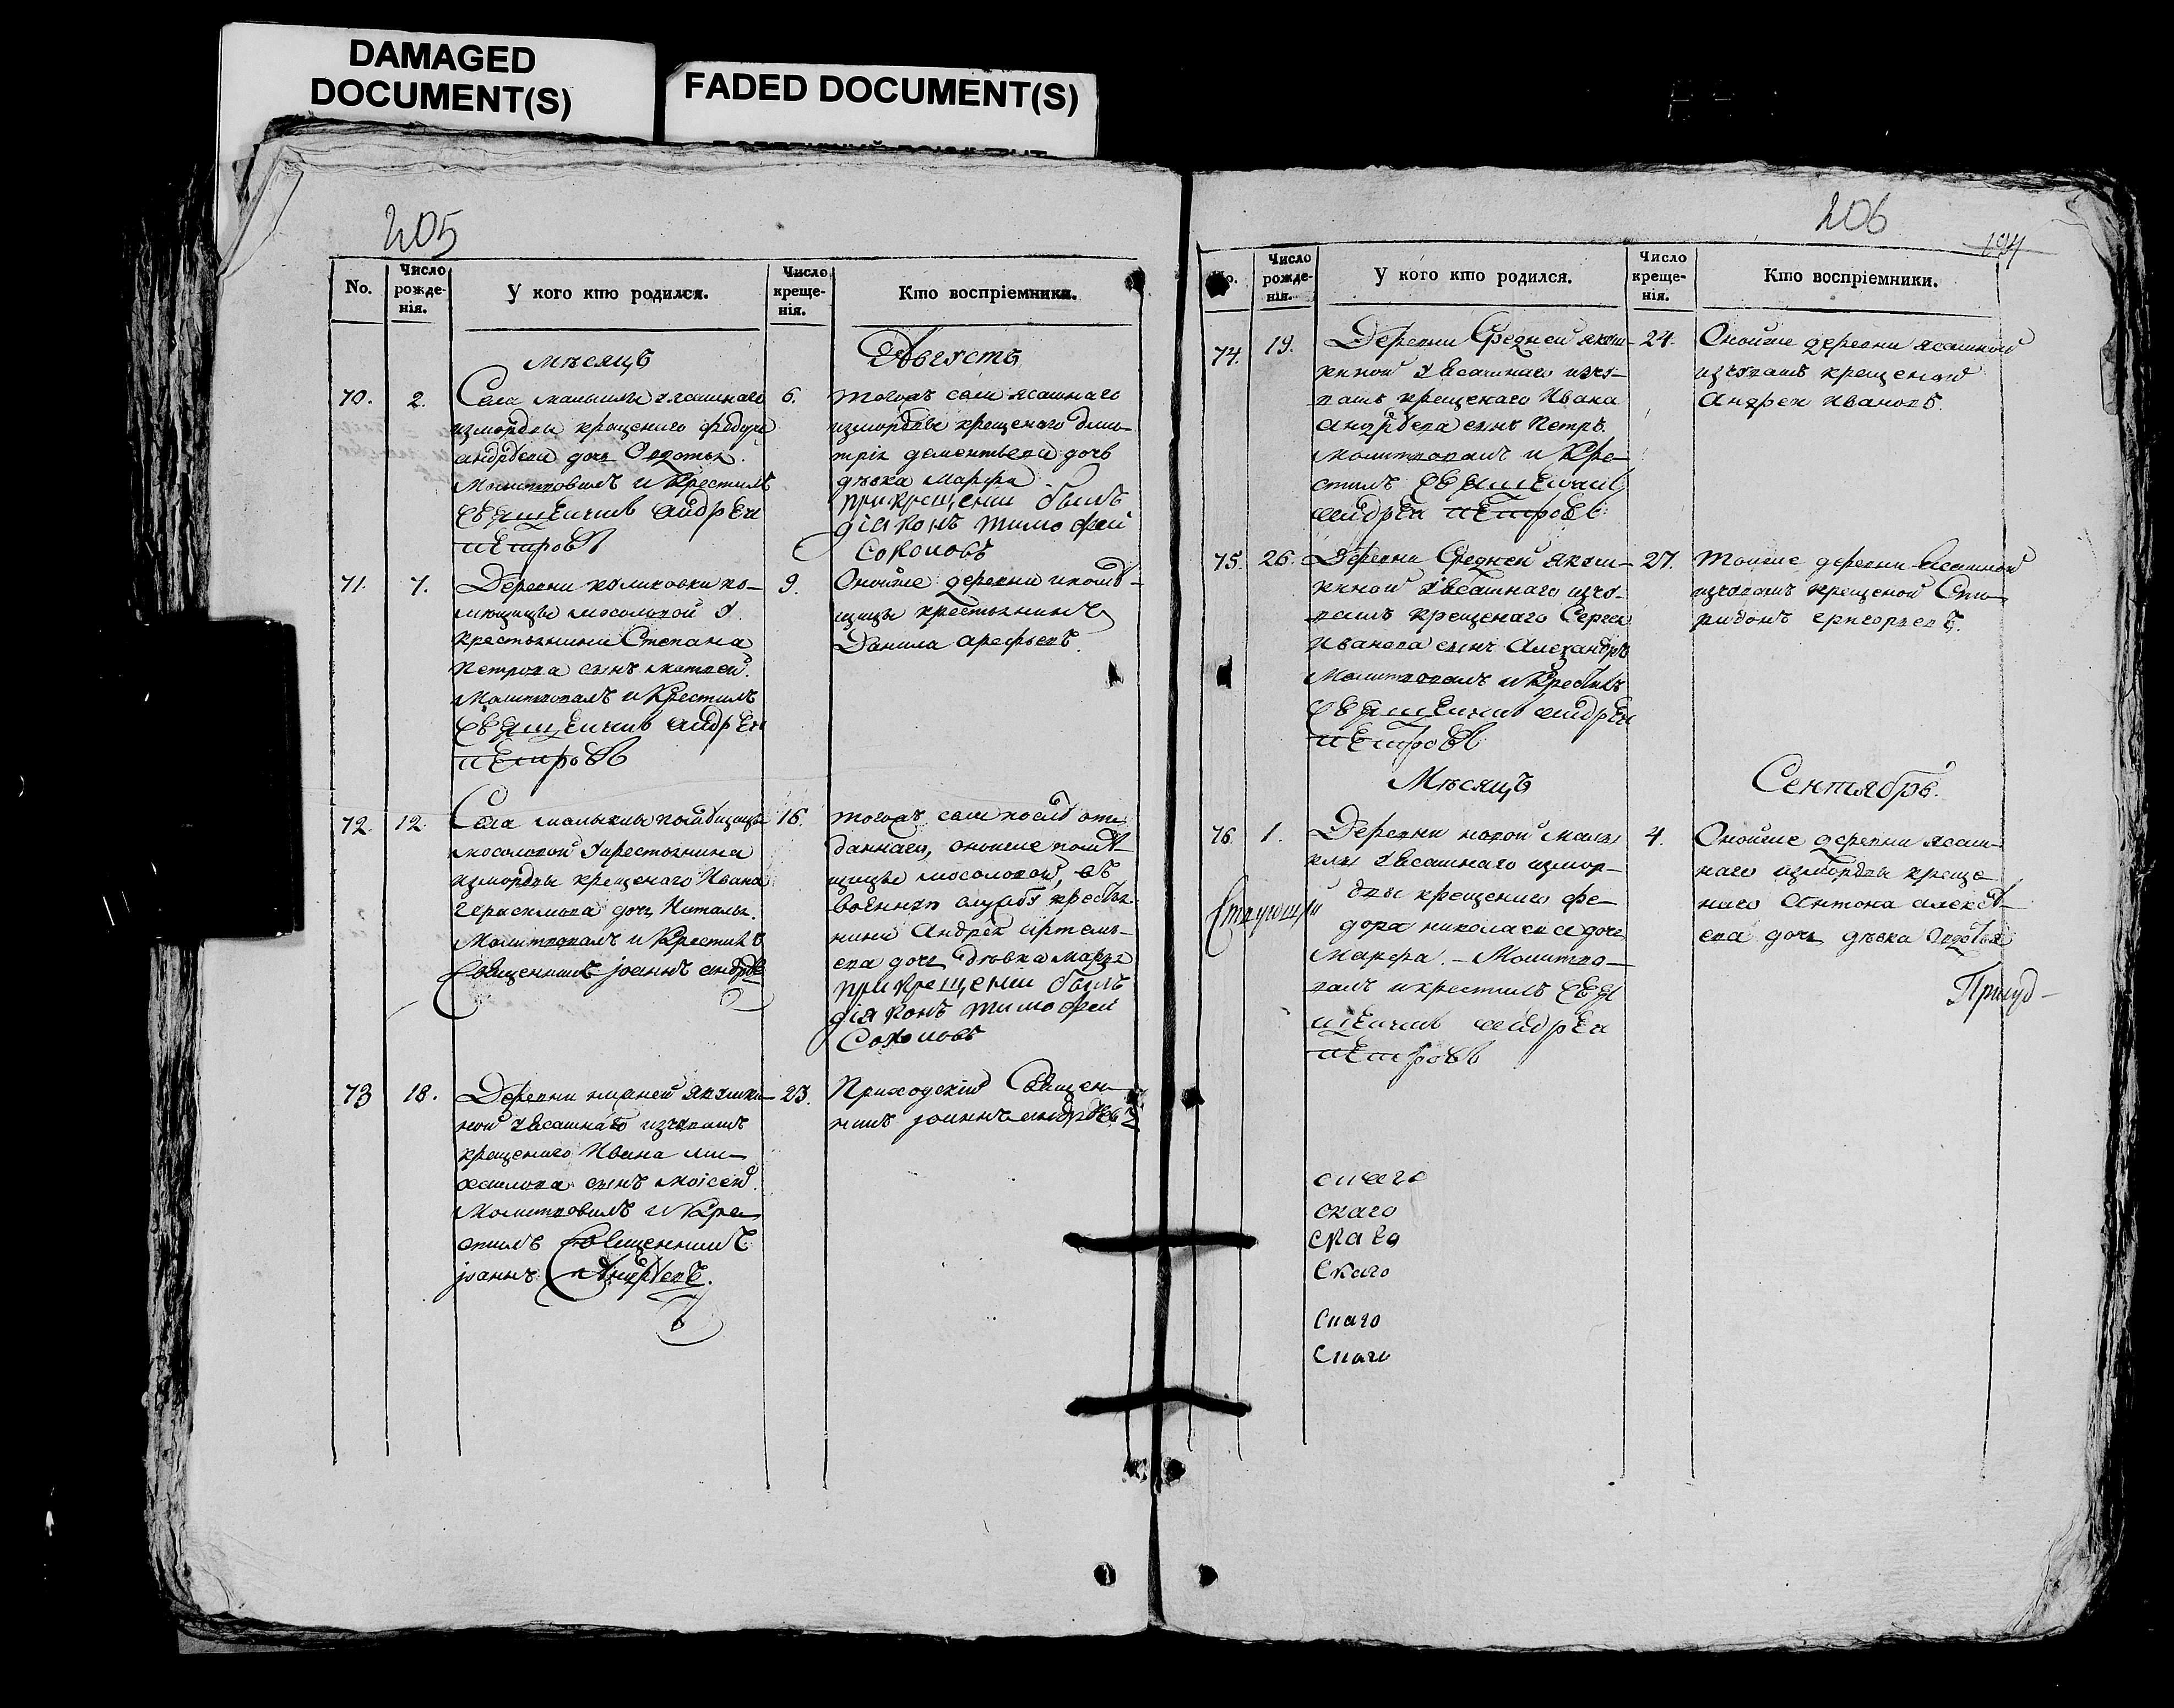 DAMAGED
DOCUMENT(S)
FADED DOCUMENT(S)
205
No.
Число рожденія.
У кого кто родился.
Число крещенія.
Кто воспріемники.
мѣсяцъ
Августъ
70.
2.
Села малыклы у ясашнаго
измордвы крещенаго федора
андрѣева дочь Овдотья.
Молитвовалъ и Крестилъ
священникъ андрей
петровъ
6.
тогожъ села ясашнаго
измордвы крещенаго дми-
трія дементьева дочь
дѣвка марфа
при крещеніи былъ
діаконъ тимофей
соколовъ
71.
7.
Деревни куликовки по-
мѣщицы мосоловой у
крестьянина Степана
Петрова сынъ матвей.
Молитвовалъ и Крестилъ
священникъ андрей
петровъ
9.
Оной же деревни и помѣ-
щицы крестьянинъ
Данила арефьевъ.
72.
12.
Села малыклы помѣщицы
мосоловой у крестьянина
измордвы крещенаго Ивана
герасимова дочь Наталья.
Молитвовалъ и Крестилъ
Священникъ іоаннъ андрѣевъ
16.
тогожъ села послѣ от-
даннаго, оной же помѣ-
щицы мосоловой, въ
военную службу крестья-
нина Андрея артемь-
ева дочь дѣвка марья
при крещеніи былъ
діаконъ тимофей
Соколовъ
73
18.
Деревни нижней якушки-
ной у ясашнаго изчувашъ
крещенаго Ивана ми-
хаилова сынъ моісей.
Молитвовалъ и Кре-
стилъ Священникъ
іоаннъ Андрѣевъ.
23.
Приходскій Священ-
никъ іоаннъ андрѣевъ
206
194
No.
Число рожденія.
У кого кто родился.
Число крещенія.
Кто воспріемники.
74.
19.
Деревни Средней якуш-
киной у ясашнаго изчу-
вашъ крещенаго Ивана
андрѣева сынъ Петръ.
Молитвовалъ и Кре-
стилъ священникъ
андрей петровъ
24.
Оной же деревни ясашной
изчувашъ крещеной
Андрей Ивановъ.
75.
26.
Деревни Средней якуш-
киной у ясашнаго изчу-
вашъ крещенаго Сергея
Иванова сынъ Александръ
Молитвовалъ и Крестилъ
священникъ андрей
петровъ
27.
тойже деревни ясашной
изчувашъ крещеной Спи-
ридонъ григорьевъ.
Мѣсяцъ
Сентябрь.
76.
1.
Деревни новой малы
клы у ясашнаго измор-
двы крещенаго фе-
дора николаева дочь
Марфа. – Молитво-
валъ и крестилъ свя
щенникъ андрей
петровъ
4.
Оной же деревни ясаш-
наго измордвы креще
наго Антона алексѣ-
ева дочь дѣвка Овдотья
скаго
скаго
скаго
скаго
скаго